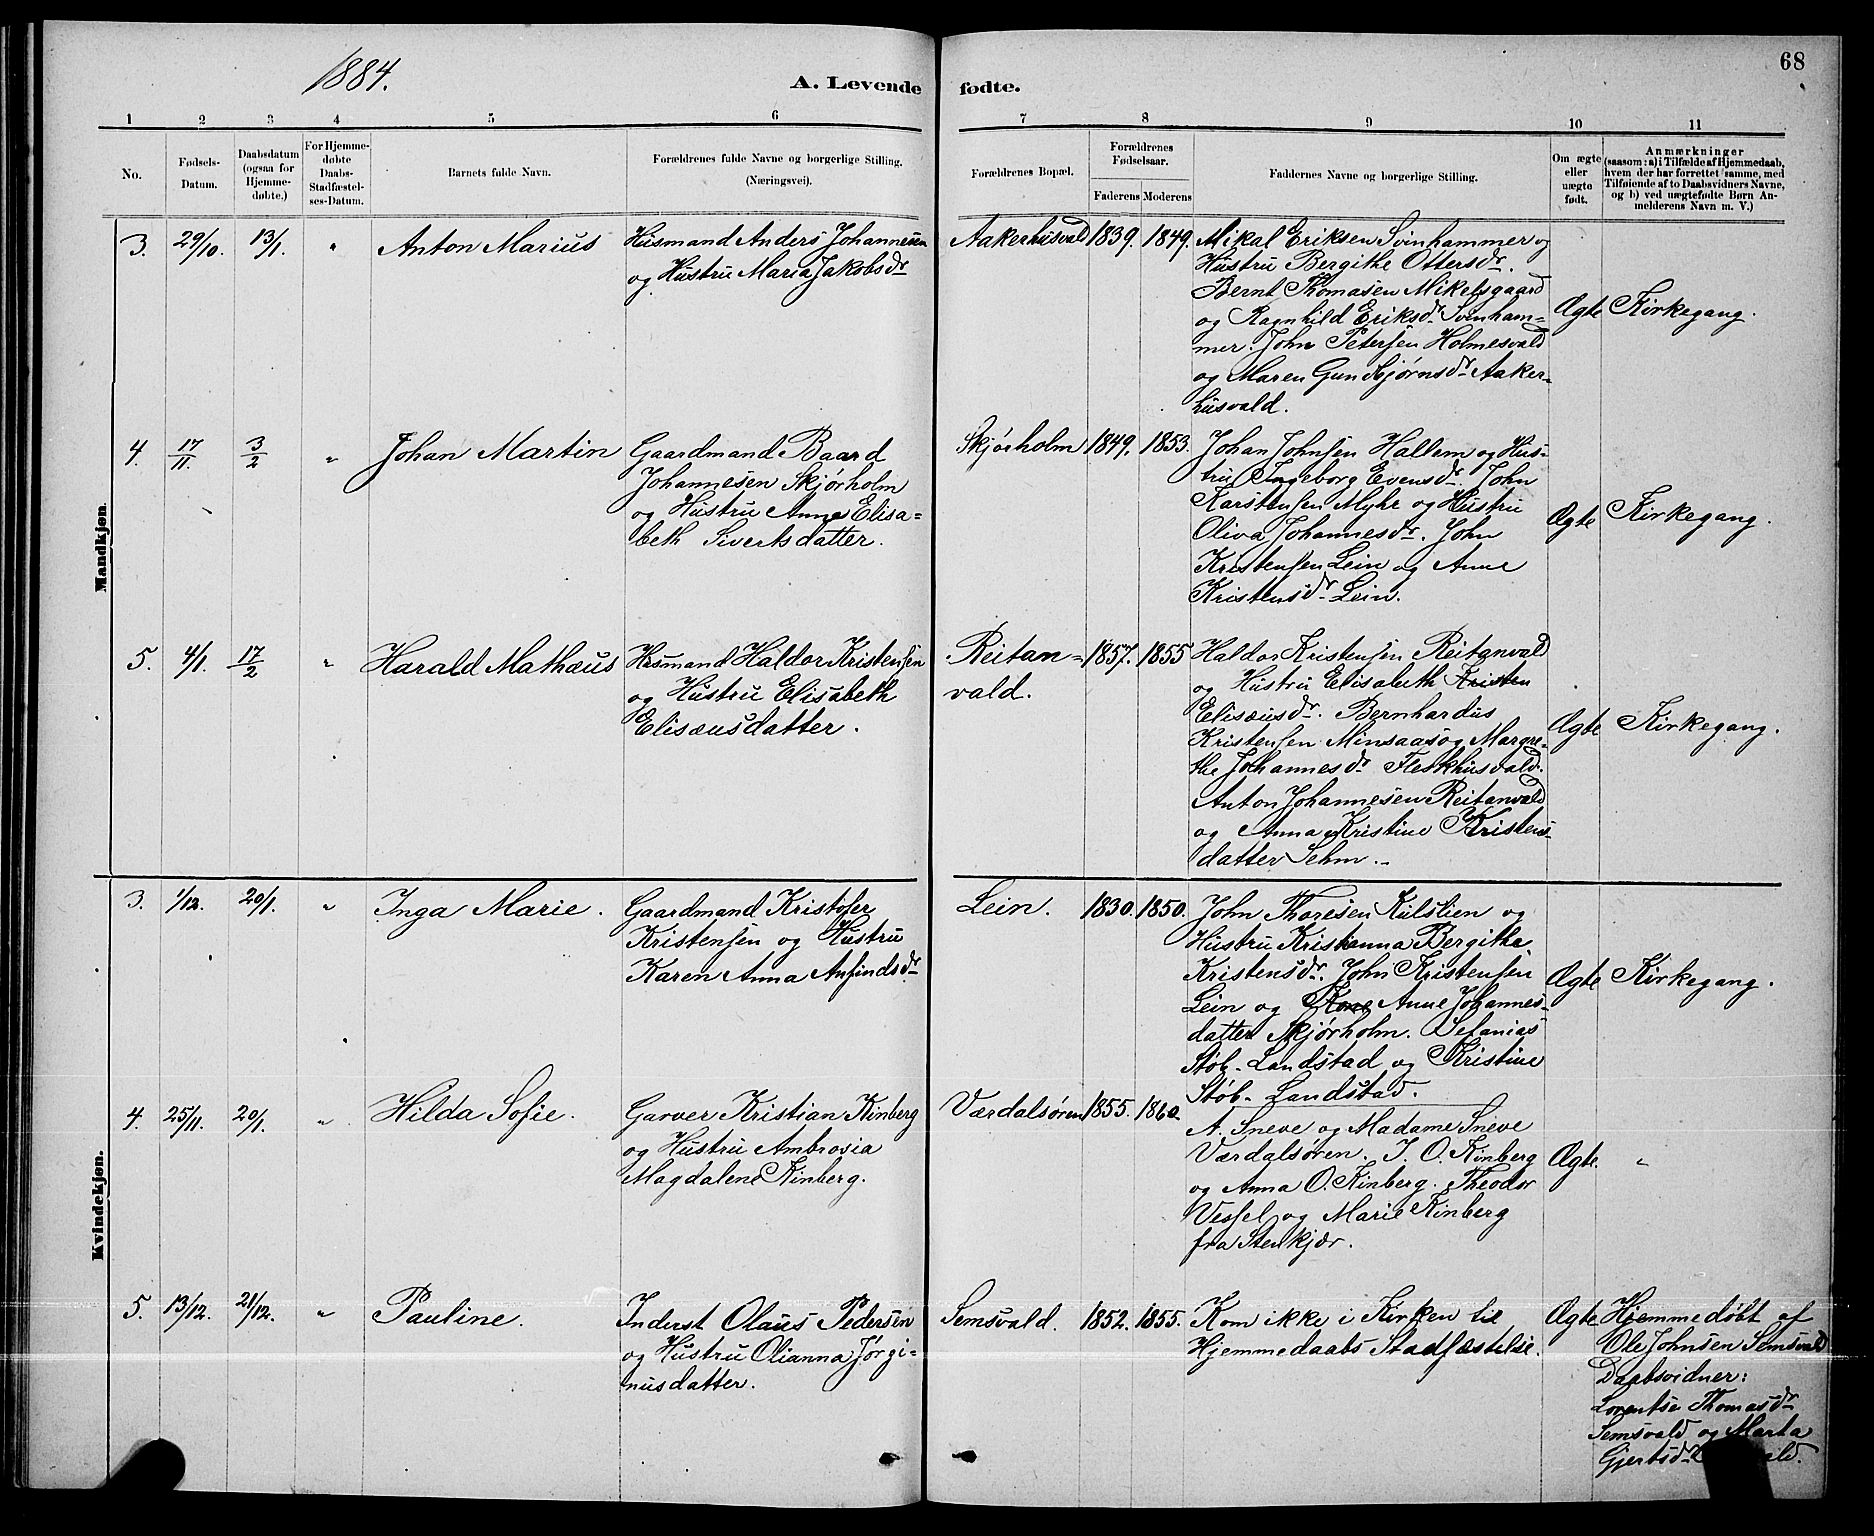 1884.
A. Levende fødte.
68
1 2 3 4 5 6 7 8 9 10 11
No.
Fødsels-
Datum.
Daabsdatum
(ogsaa for
Hjemme-
døbte.)
For Hjemme-
døbte
Daabs-
Stadfæstel-
ses-Datum.
Barnets fulde Navn.
Forældrenes fulde Navne og borgerlige Stilling.
(Næringsvei).
Forældrenes Bopæl.
Forældrenes
Fødselsaar.
Faderens Moderens
Faddernes Navne og borgerlige Stilling.
Om ægte
eller
uægte
født.
Anmærkninger
(saasom: a) i Tilfælde af Hjemmedaab,
hvem der har forrettet samme, med
Tilføiende af to Daabsvidners Navne,
og b) ved uægtefødte Børn An-
melderens Navn m. V.)
Mandkjøn.
3. 29/10. 13/1. " Anton Marius
Husmand Anders Johannesen
og Hustru Maria Jakobsdr
Aakerhusvald 1839. 1849.
Mikal Eriksen Svinhammer og
Hustru Bergithe Ottersdr.
Bernt Thomasen Mikelsgaard
og Ragnhild Eriksdr Svinham-
mer. John Petersen Holmesvald
og Maren Gundbjørnsdr Aaker-
husvald.
Ægte Kirkegang.
4. 17/11. 3/2 " Johan Martin
Gaardmand Baard
Johannesen Skjørholm
og Hustru Anne Elisa-
beth Sivertsdatter.
Skjørholm 1849. 1853.
Johan Johnsen Hallem og Hus-
tru Ingeborg Evensdr. John
Karstensen Myhr og Hustru
Oliva Johannesdr. John
Kristensen Lein og Anne
Kristensdr Lein.
Ægte Kirkegang.
5. 4/1. 17/2 " Harald Mathæus
Husmand Haldor Kristensen
og Hustru Elisabeth
Elisæusdatter.
Reitan-
vald.
1857. 1855
Haldor Kristensen Reitanvald
og Hustru Elisabeth Kristen
Elisæusdr. Bernhardus
Kristensen Minsaas og Margre-
the Johannesdr Fleskhusvald.
Anton Johannesen Reitanvald
og Anna Kristine Kristens-
datter Sehm.
Ægte Kirkegang.
Kvindekjøn.
3. 1/12. 20/1. " Inga Marie.
Gaardmand Kristofer
Kristensen og Hustru
Karen Anna Anfindsdr
Lein. 1830. 1850.
John Thoresen Kulslien og
Hustru Kristianna Bergitha
Kristensdr. John Kristensen
Lein og Kone Anne Johannes-
datter Skjørholm. Sefanias
Støb. Landstad og Kristine
Støb. Landstad.
Ægte Kirkegang.
4. 25/11. 20/1. " Hilda Sofie.
Garver Kristian Kinberg
og Hustru Ambrosia
Magdalene Kinberg.
Værdalsøren 1855. 1860.
A. Sneve og Madame Sneve
Værdalsøren. I. O. Kinberg
og Anna O. Kinberg. Theodor
Vessel og Marie Kinberg
fra Stenkjær.
Ægte. "
5. 13/12. 21/12. " Pauline.
Inderst Olaus Pedersen
og Hustru Olianna Jørgi-
nusdatter.
Semsvald. 1852. 1855.
Kom ikke i Kirken til
Hjemmedaabs Stadfæstelse.
Ægte
Hjemmedøbt af
Ole Johnsen Semsvald
Daabsvidner:
Lorentse Thomasdr
Semsvald og Marta
Gjertsdr